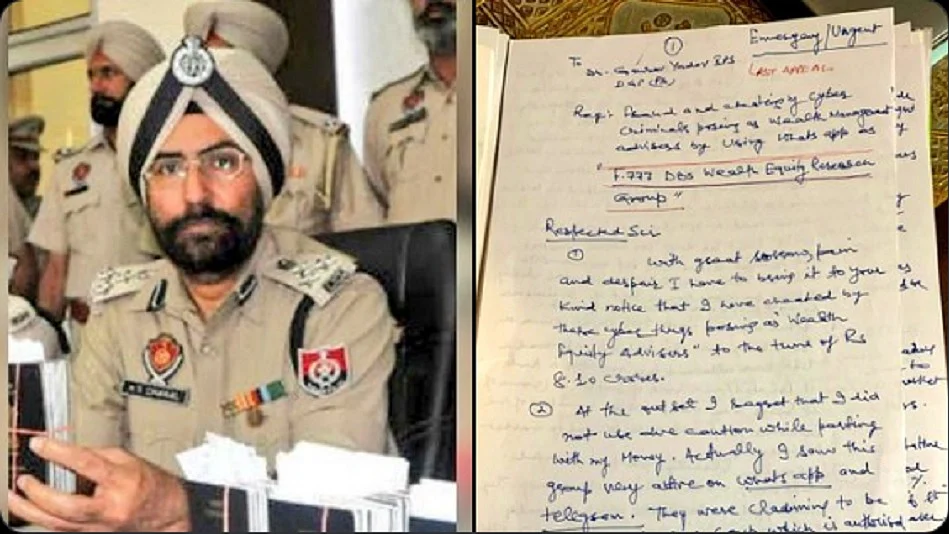 ①
Emergency/Urgent
To
Dr. Gaurav Yadav IPS
DGP (Pb)
LAST APPEAL
Reg:- Fraud and cheating by cyber
criminals posing as Wealth Management
advisers by Using Whats app as
"F-777 DBS Wealth Equity Research
Group"
Respected Sir
① With great pain
and despair I have to bring it to your
Kind notice that I have cheated by
these cyber thugs posing as "Wealth
Equity Advisors" to the tune of Rs
8.10 crores.
② At the outset I regret that I did
not use due caution while parting
with my Money. Actually I saw this
group very active on whats app and
telegram. They were claiming to be
which is authorised